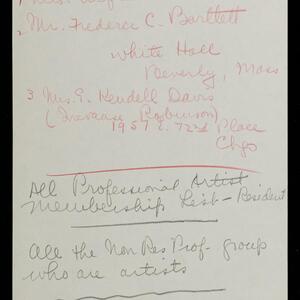 1 Mrs.
2 Mr. Frederic C. Bartlett
White Hall
Beverly, Mass
3 Mrs. G. Kendell Davis
( Robinson)
1957 E. 72d Place
Chgo
All Professional Artist
Membership List - Resident
All the Non Res Prof- group
who are artists